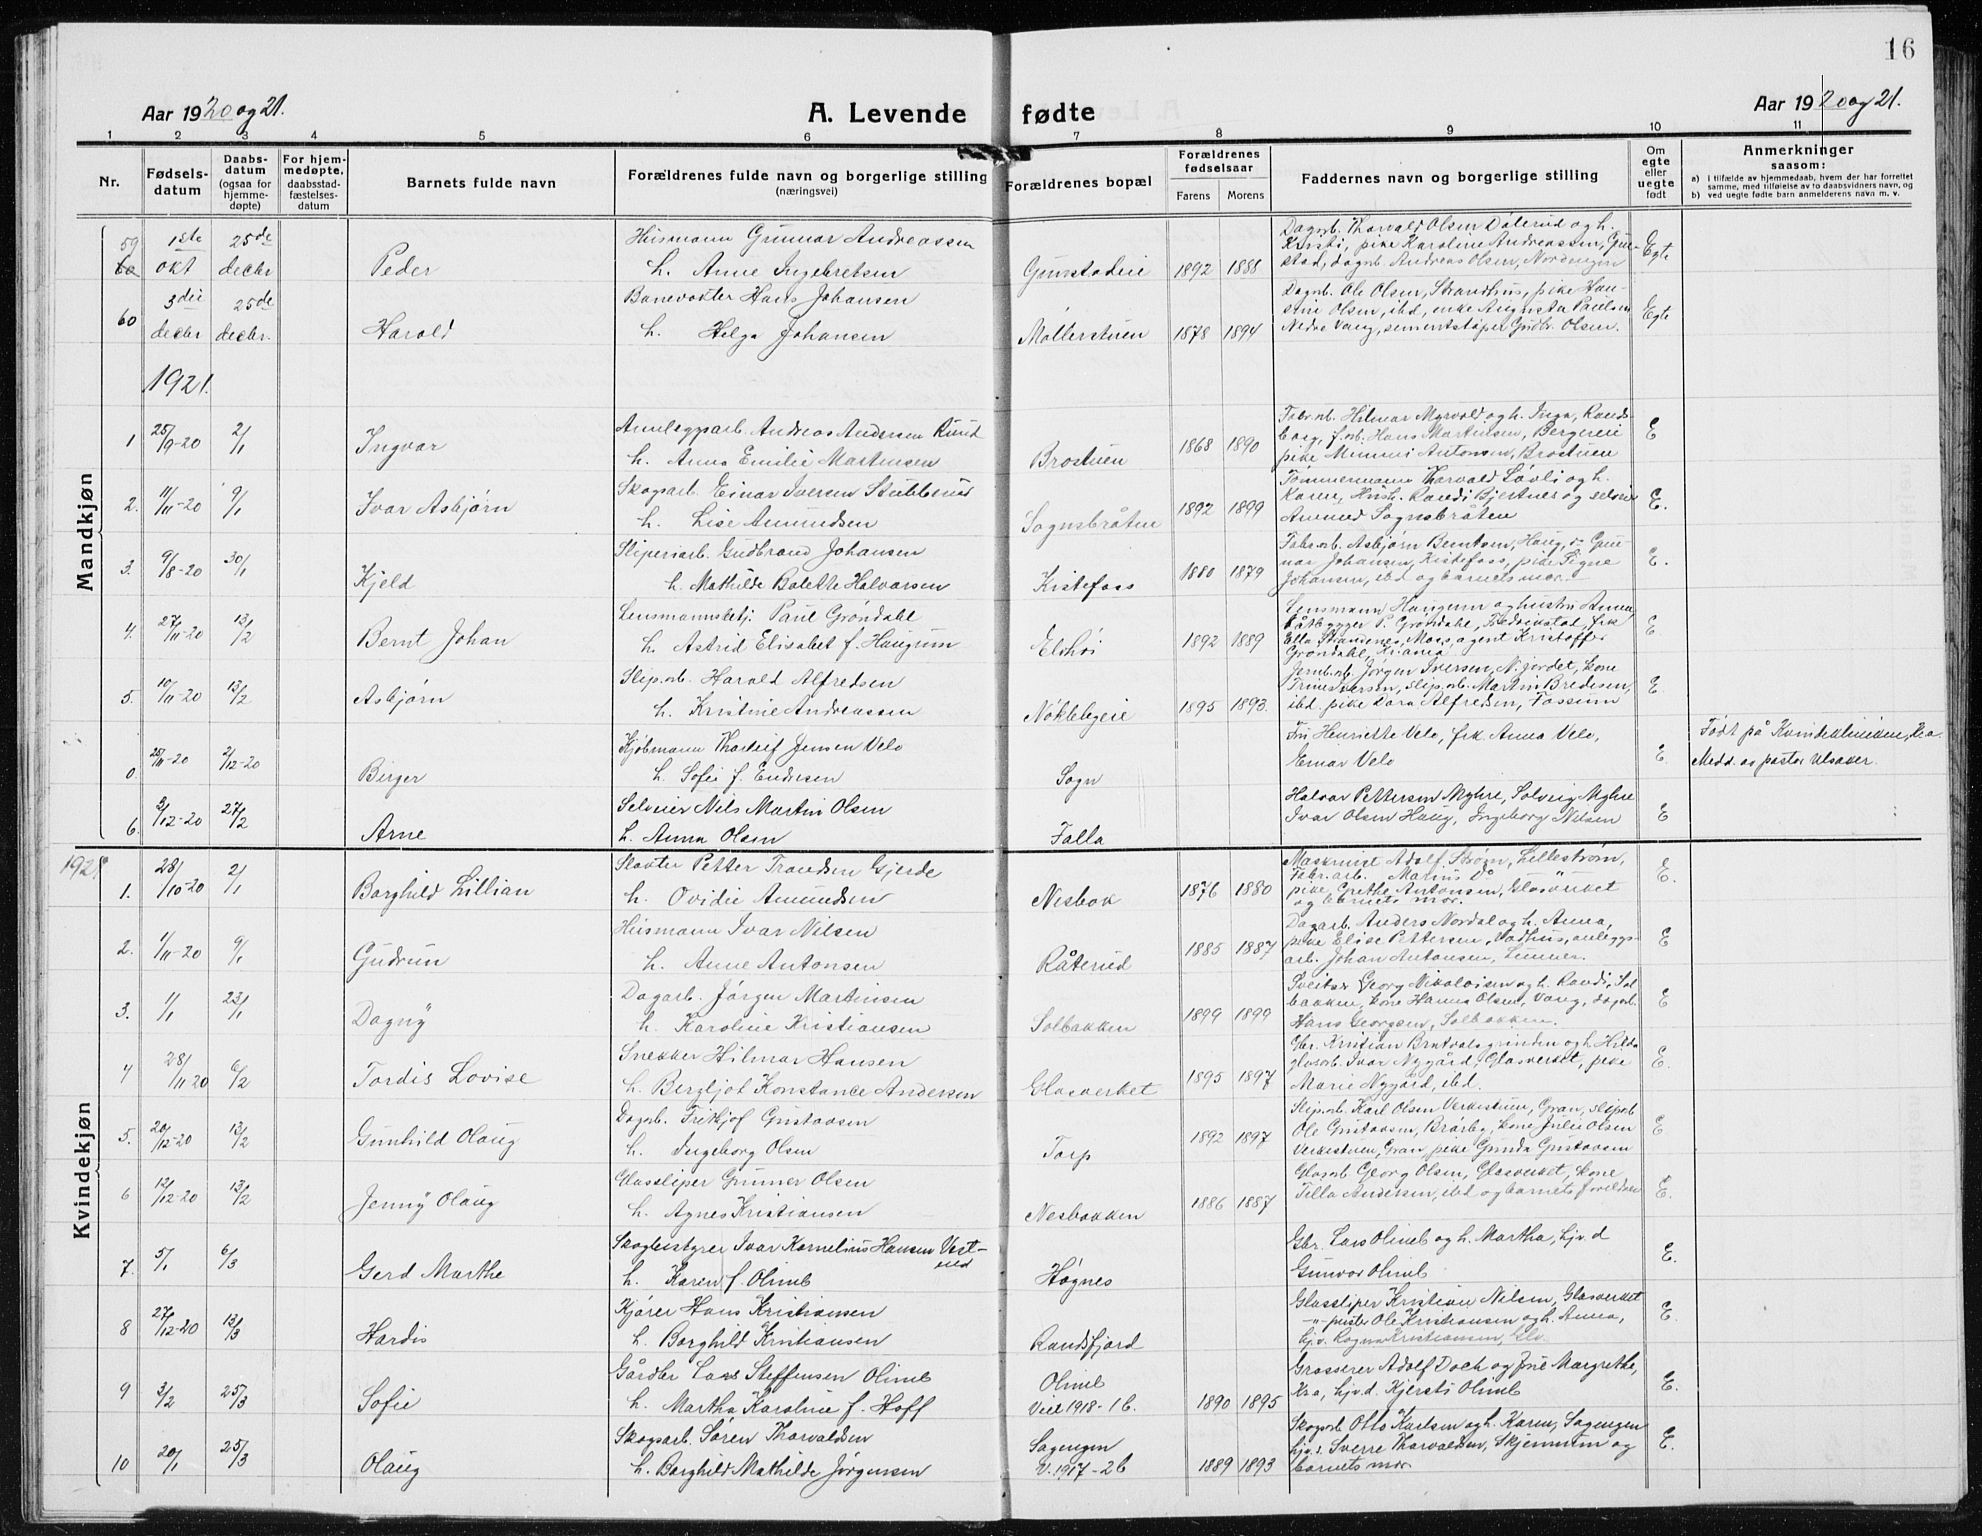 16
Aar 1920 og 21.
A. Levende fødte
Aar 1920 og 21.
1 2 3 4 5 6 7 8 9 10 11
Nr.
Fødsels-
datum
Daabs-
datum
(ogsaa for
hjemme-
døpte)
For hjem-
medøpte,
daabsstad-
fæstelses-
datum
Barnets fulde navn
Forældrenes fulde navn og borgerlige stilling
(næringsvei)
Forældrenes bopæl
Forældrenes
fødselsaar
Farens Morens
Faddernes navn og borgerlige stilling
Om
egte
eller
uegte
født
Anmerkninger
saasom:
a) i tilfælde av hjemmedaab, hvem der har forrettet
samme, med tilføielse av to daabsvidners navn, og
b) ved uegte fødte barn anmelderens navn m. v.
Mandkjøn
59 1ste 25de Husmann Gunnar Andreassen
60 okt decbr Peder h. Anne Ingebretsen 1892 1888 Egte
Dagarb. Thorvald Olsen Dælerud og h.
Kristi, pike Karoline Andreassen, Gun-
stad, dagarb. Andreas Olsen, Nordengen
60 3die 25de Banevokter Hans Johansen
decbr decbr. Harald h. Helga Johansen Møllerstuen 1878 1894 Egte
Dagarb. Ole Olsen, Strandhus, pike Han-
sine Olsen, ibd, enke Augusta Paulsen
Nedre Vang, sementstøper Gudbr. Olsen.
1921.
1 25/9-20 2/1 Ingvar Anleggsarb. Andreas Andersen Ruud
h. Anna Emilie Martinsen Brostuen 1868 1890 E
Fabr.arb. Hilmar Myrvold og h. Inga, Rands-
borg, f.arb. Hans Martinsen, Bergereie
pike Mimmi Antonsen, Brostuen
2. 11/11-20 9/1 Ivar Asbjørn Skogsarb. Einar Iversen Stubberud
h. Lise Amundsen Sognsbråten 1892 1899 E.
Tømmermann Thorvald Løvli og h.
Karen, Hush. Randi Bjertnes og selveier
Amund Sognsbråten
3. 9/8-20 30/1 Kjeld Sliperiarb. Gudbrand Johansen
h. Mathilde Bolette Halvorsen Kistefoss 1880 1879 E.
Fabr.arb. Asbjørn Berntsen, Haug, Gun-
nar Johansen, Kistefoss, pike Signe
Johansen, ibd og barnets mor.
4. 27/11-20 13/2 Bernt Johan Lensmannsbetj. Paul Grøndahl
h. Astrid Elisabet f. Haugum Elshøi 1892 1889 E
Lensmann Haugum og hustru Anna,
Båtbygger P. Grøndahl, Fredrikstad, frk
Ella Strandenes, Moss, agent Kristoffer
Grøndahl, Kr.ania
5. 10/11-20 13/2 Asbjørn Slip.arb. Harald Alfredsen
h. Kristine Andreassen Nøklebyeie 1895 1893. E
Jernb.arb. Jørgen Iversen, N. jordet, kone
Trine Iversen, slip.arb. Martin Bredesen,
ibd. pike Dora Alfredsen, Fossum
0. 25/11-20 2/12-20 Birger Kjøbmann Thorleif Jensen Velo
h. Sofie f. Endresen Sogn E.
Fru Henriette Velo, frk Anna Velo,
Einar Velo
Født på Kvindeklinikken, Kra.
Medd. av pastor Ulsaker.
6. 3/12-20 27/2 Arne Selveier Nils Martin Olsen
h. Anna Olsen Falla E
Halvor Pettersen Myhre, Solveig Myhre
Ivar Olsen Haug, Ingeborg Nilsen
Kvindekjøn
1921
1. 28/10-20 2/1 Borghild Lillian Slakter Petter Trondsen Gjerde
h. Ovidie Amundsen Nesbak 1876 1880 E.
Maskinist Adolf Strøm, Lillestrøm,
Fabr.arb. Marius Do
pike Grethe Antonsen, Glasverket
og barnets mor.
2. 1/11-20 9/1 Gudrun Husmann Ivar Nilsen
h. Anne Antonsen Råterud 1885 1887 E
Dagarb. Anders Nordal og h. Anna,
pike Elise Pettersen, anleggs-
arb. Johan Antonsen, Lunner.
3. 1/1 23/1 Dagny Dagarb. Jørgen Martinsen
h. Karoline Kristiansen Solbakken 1899 1899 E
Sveitser Georg Nikolaisen og h. Randi, Sol-
bakken, kone Hanna Olsen, Vang, dagarb.
Hans Georgsen, Solbakken.
4 28/11 20 6/2 Tordis Lovise Snekker Hilmar Hansen
h. Bergljot Konstance Andersen Glasverket 1895 1897 E.
Gbr. Kristian Bratvalsgrinden og h. Hilda
glasarb. Ivar Nygård, Glasverket, pike
Marie Nygård, ibd.
5. 20/12-20 13/2 Gunhild Olaug Dagarb. Fritjof Gustavsen
h. Ingeborg Olsen Torp 1892 1897 E
Slip.arb. Karl Olsen Verkestuen, Gran, sliparb
Ole Gustavsen, Brårby, kone Julie Olsen
Verkestuen, Gran, pike Gunda Gustavsen
6 12/12-20 13/2 Jenny Olaug Glassliper Gunner Olsen
h. Agnes Kristiansen Nesbakken 1886 1887 E.
Glasarb Georg Olsen, Glasverket, kone
Tilla Andersen, ibd og barnets foreldre
7. 5/1 6/3 Gerd Marthe Skogbestyrer Ivar Kornelius Hansen Vest-
ern
h. Karen f. Olimb Høgnes E.
Gbr. Lars Olimb og h. Martha, hjv.d
Gunvor Olimb
8 27/12-20 13/3 Hardis Kjører Hans Kristiansen
h. Borghild Kristiansen Randsfjord E.
Glassliper Kristian Nilsen, Glasverket
-"- puster Ole Kristiansen og h. Anna,
hjv. Ragna Kristiansen, Glv.
9 3/2 25/3 Sofie Gårdbr Lars Steffensen Olimb
h. Martha Karoline f. Hoff Olimb
Viel 1918-16. 1890 1895 E.
Grosserer Adolf Doch og frue Margrethe,
Kra, hjv.d. Kjersti Olimb
10 20/1 25/3 Olaug Skogsarb. Søren Thorvaldsen
h. Borghild Mathilde Jørgensen Sagengen
V. 1917-26 1889 1893 E.
Skogarb Otto Karlsen og h. Karen, Sagengen
hjv.s. Sverre Thorvaldsen, Skjennum og
barnets mor